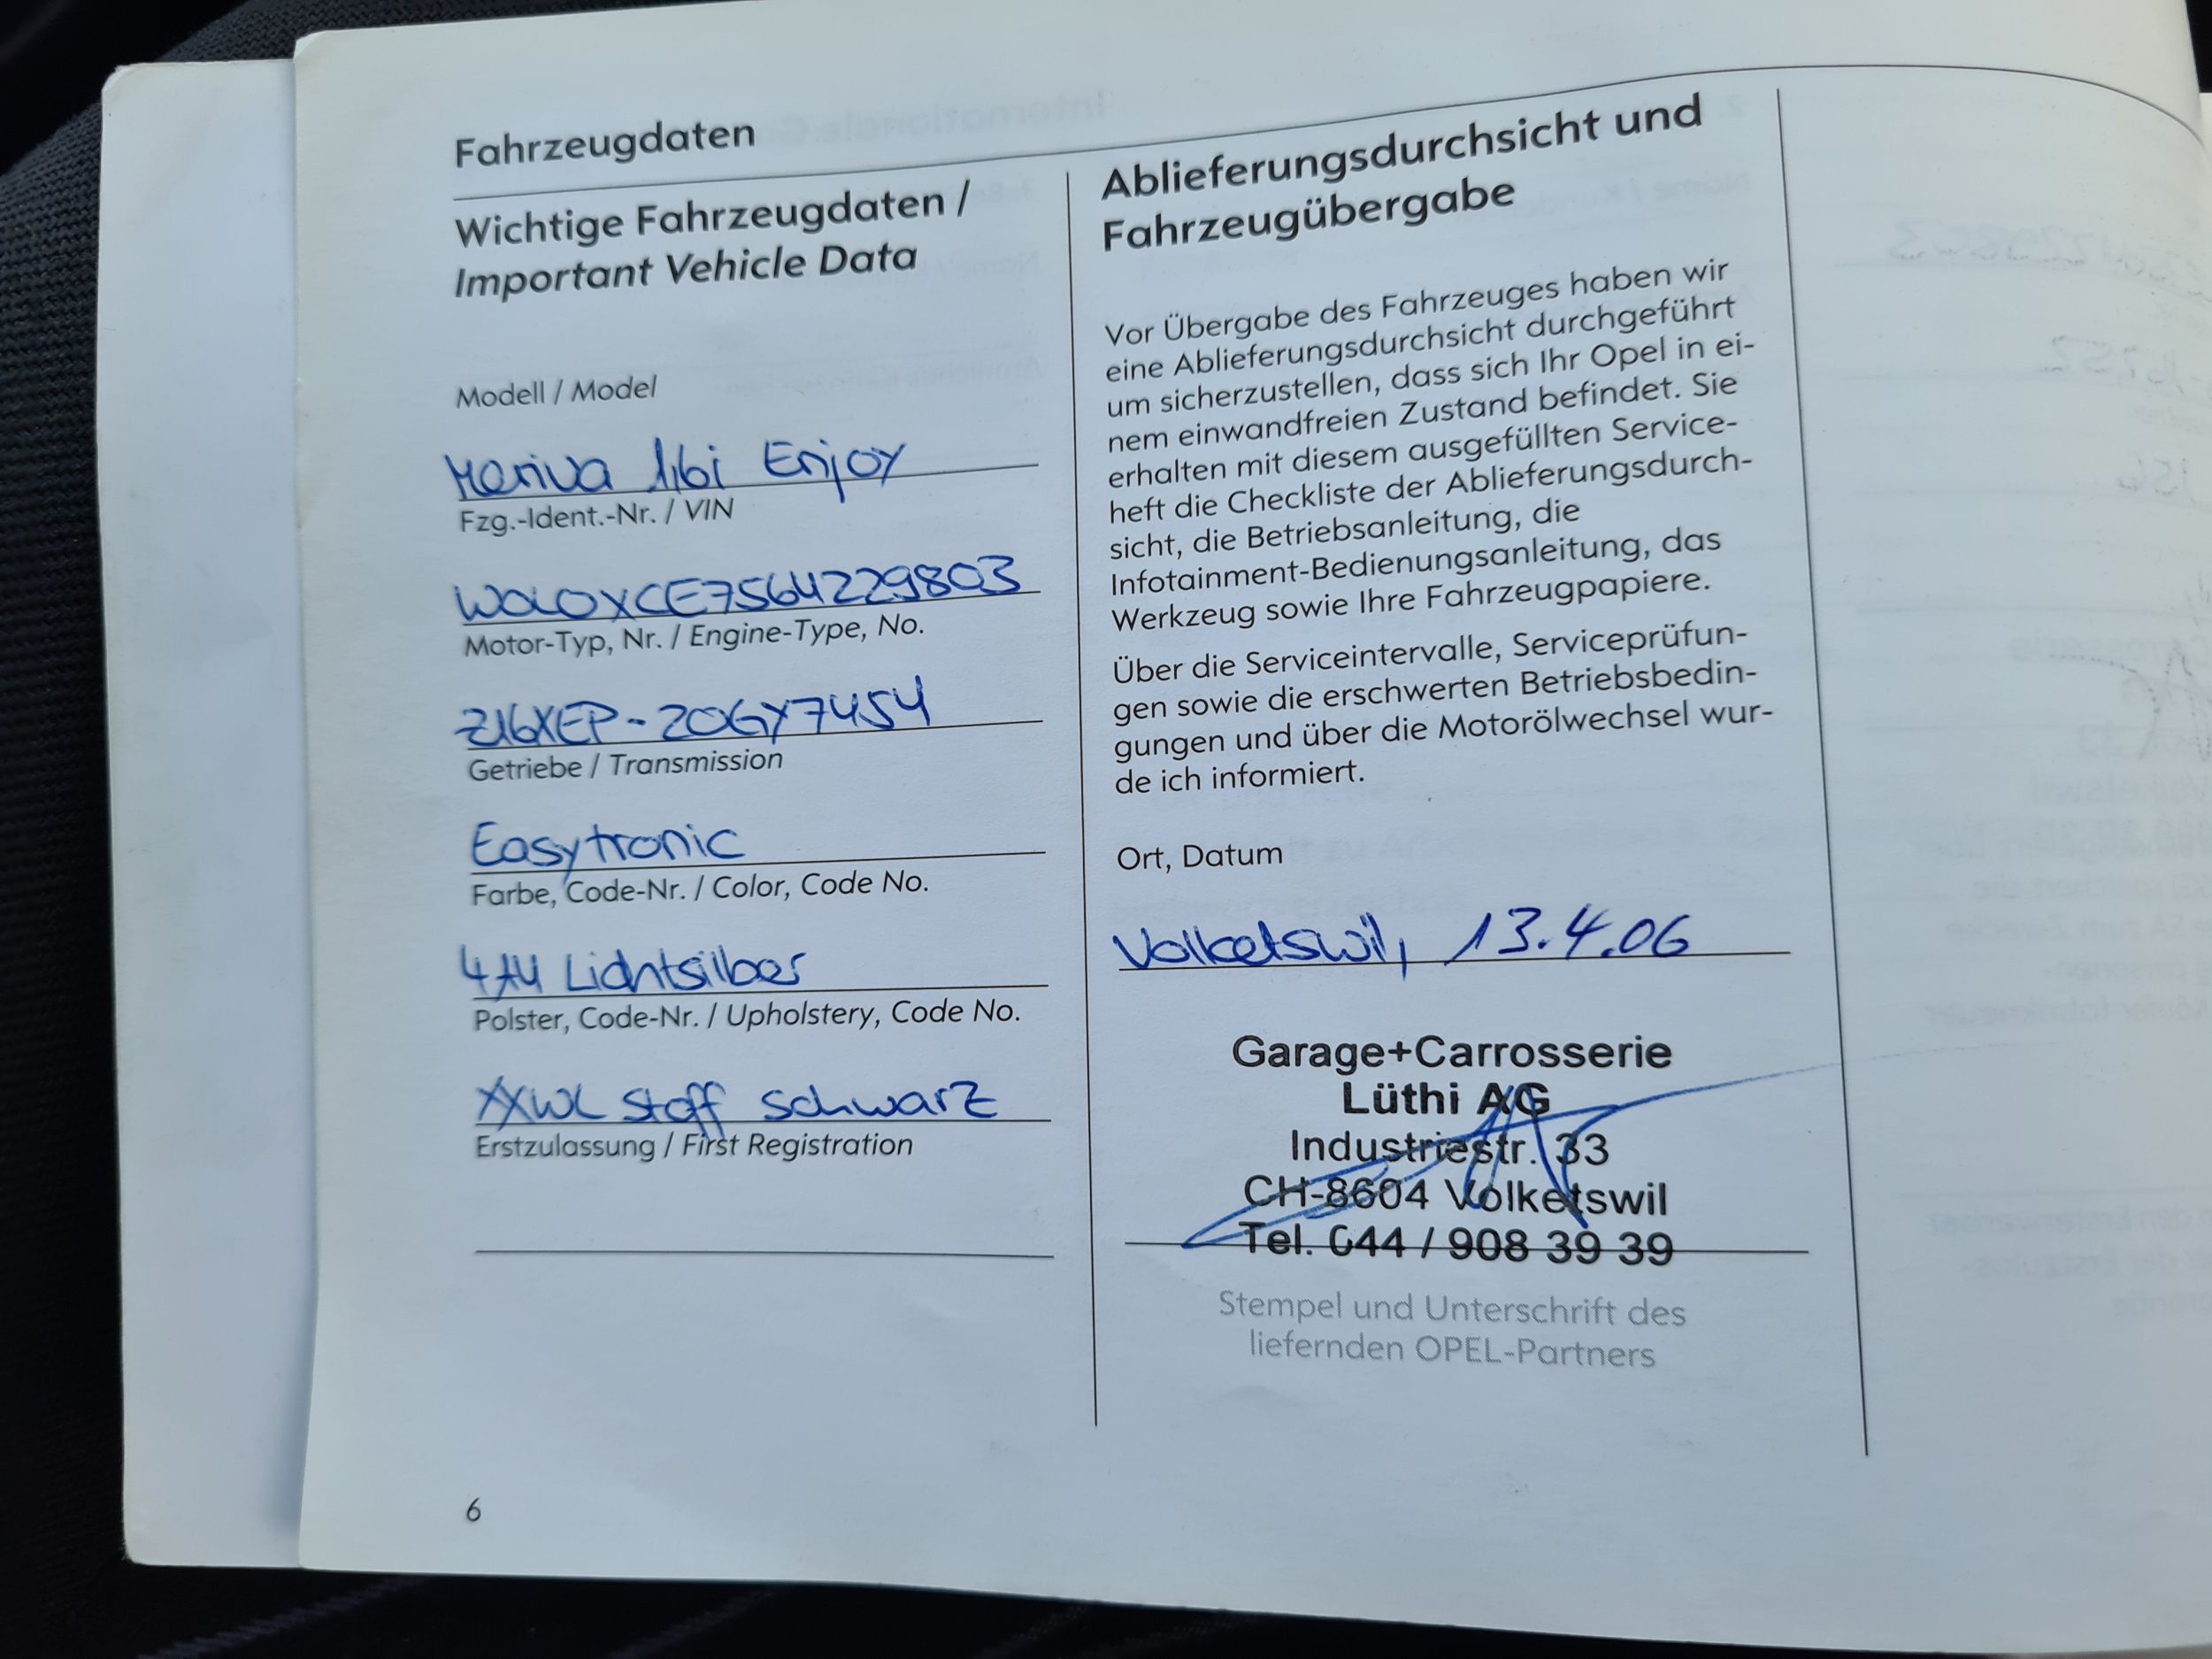 Fahrzeugdaten
Wichtige Fahrzeugdaten /
Important Vehicle Data
Modell / Model
Meriva 1,6i Enjoy
Fzg.-Ident.-Nr. / VIN
W0L0XCE7564229803
Motor-Typ, Nr. / Engine-Type, No.
Z16XEP-20GY7454
Getriebe / Transmission
Easytronic
Farbe, Code-Nr. / Color, Code No.
Lichtsilber
Polster, Code-Nr. / Upholstery, Code No.
Stoff schwarz
Erstzulassung / First Registration
6
Ablieferungsdurchsicht und
Fahrzeugübergabe
Vor Übergabe des Fahrzeuges haben wir
eine Ablieferungsdurchsicht durchgeführt
um sicherzustellen, dass sich Ihr Opel in ei-
nem einwandfreien Zustand befindet. Sie
erhalten mit diesem ausgefüllten Service-
heft die Checkliste der Ablieferungsdurch-
sicht, die Betriebsanleitung, die
Infotainment-Bedienungsanleitung, das
Werkzeug sowie Ihre Fahrzeugpapiere.
Über die Serviceintervalle, Serviceprüfun-
gen sowie die erschwerten Betriebsbedin-
gungen und über die Motorölwechsel wur-
de ich informiert.
Ort, Datum
Volketswil, 13.4.06
Garage+Carrosserie
Lüthi AG
Industriestr. 33
CH-8604 Volketswil
Tel. 044 / 908 39 39
Stempel und Unterschrift des
liefernden OPEL-Partners